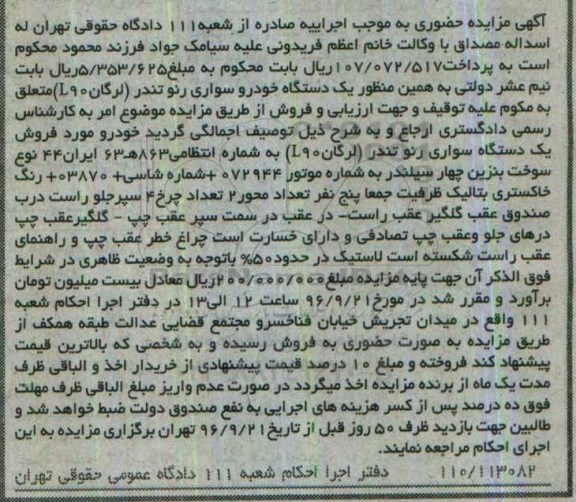 آگهی مزایده حضوری به موجب اجراییه صادره از شعبه۱۱۱ دادگاه حقوقی تهران له
اسداله مصداق با وکالت خانم اعظم فریدونی علیه سیامک جواد فرزند محمود محکوم
است به پرداخت۱۰۷/۰۷۲/۵۱۷ریال بابت محکوم به مبلغ۵/۳۵۳/۶۲۵ریال بابت
نیم عشر دولتی به همین منظور یک دستگاه خودرو سواری رنو تندر (لرگان۹۰L)متعلق
به مکوم علیه توقیف و جهت ارزیابی و فروش از طریق مزایده موضوع امر به کارشناس
رسمی دادگستری ارجاع و به شرح ذیل توصیف اجمالگی گردید خودرو مورد فروش
یک دستگاه سواری رنو تندر (لرگان۹۰L) به شماره انتظامی۸۶۳هـ۶۳ ایران۴۴ نوع
سوخت بنزین چهار سیلندر به شماره موتور ۰۷۲۹۴۴ +شماره شاسی+ ۰۳۸۷۰+ رنگ
خاکستری بتالیک ظرفیت جمعا پنج نفر تعداد محور۲ تعداد چرخ۴ سپرجلو راست درب
صندوق عقب گلگیر عقب راست- در عقب در سمت سپر عقب چپ - گلگیرعقب چپ
درهای جلو وعقب چپ تصادفی و دارای خسارت است چراغ خطر عقب چپ و راهنمای
عقب راست شکسته است لاستیک در حدود۵۰% باتوجه به وضعیت ظاهری در شرایط
فوق الذکر آن جهت پایه مزایده مبلغ۲۰۰/۰۰۰/۰۰۰ریال معادل بیست میلیون تومان
برآورد و مقرر شد در مورخ۹۶/۹/۲۱ ساعت ۱۲ الی۱۳ در دفتر اجرا احکام شعبه
۱۱۱ واقع در میدان تجریش خیابان فناخسرو مجتمع قضایی عدالت طبقه همکف از
طریق مزایده به صورت حضوری به فروش رسیده و به شخصی که بالاترین قیمت
پیشنهاد کند فروخته و مبلغ ۱۰ درصد قیمت پیشنهادی از خریدار اخذ و الباقی ظرف
مدت یک ماه از برنده مزایده اخذ میگردد در صورت عدم واریز مبلغ الباقی ظرف مهلت
فوق ده درصد پس از کسر هزینه های اجرایی به نفع صندوق دولت ضبط خواهد شد و
طالبین جهت بازدید ظرف ۵۰ روز قبل از تاریخ۹۶/۹/۲۱ تهران برگزاری مزایده به این
اجرای احکام مراجعه نمایند.
۱۱۰/۱۱۳۰۸۲ دفتر اجرا احکام شعبه ۱۱۱ دادگاه عمومی حقوقی تهران